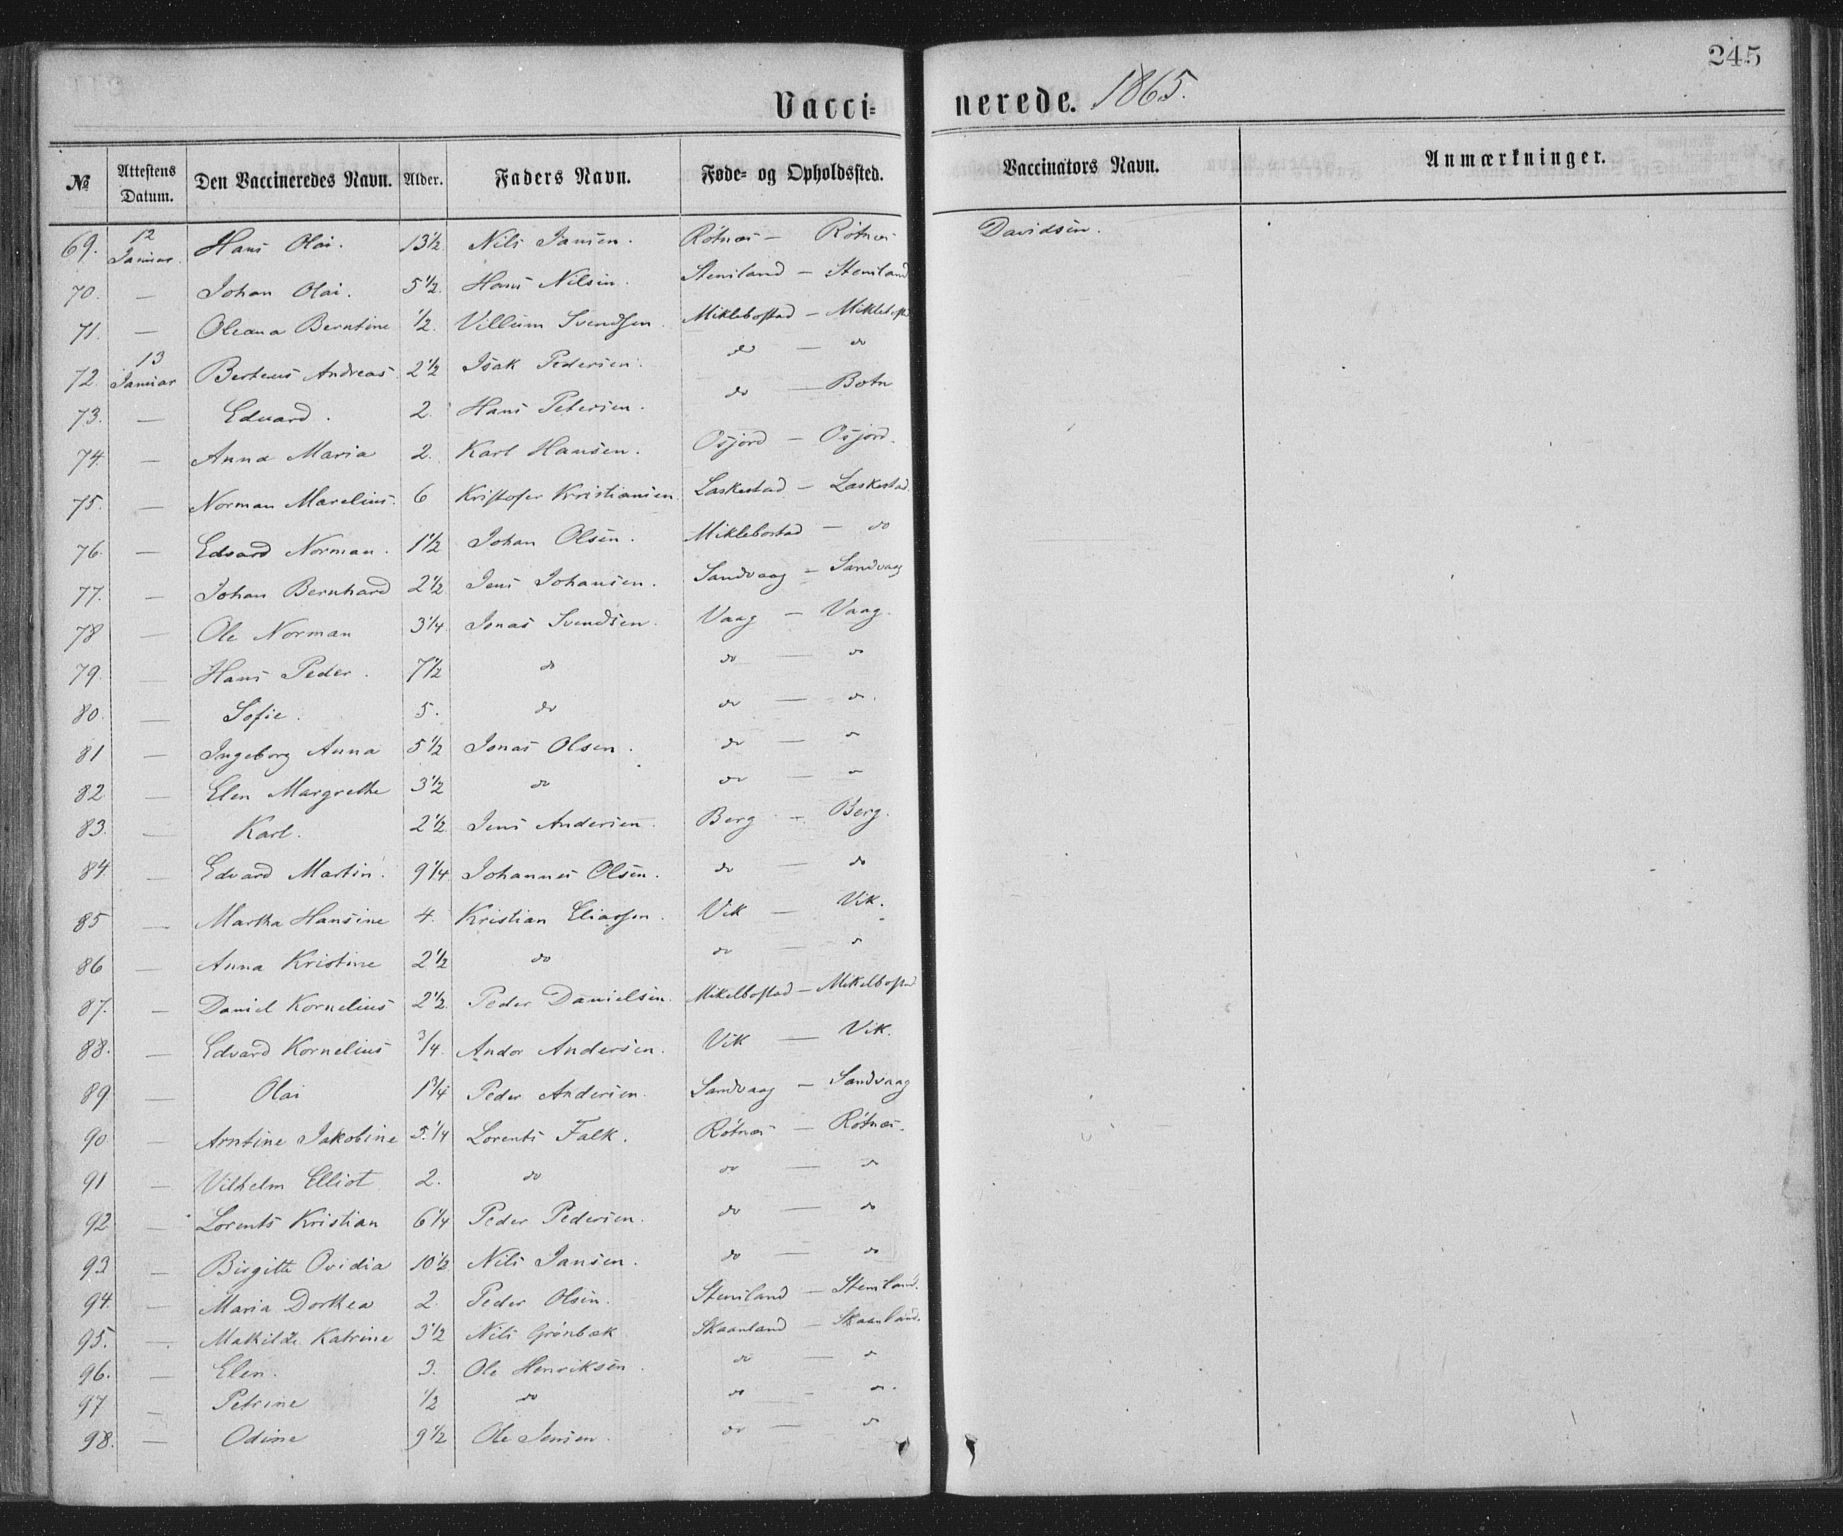 245
Vacci= nerede. 1865.
№ Attestens Datum. Den Vaccineredes Navn. Alder. Faders Navn. Føde- og Opholdssted. Vaccinators Navn. Anmærkninger.
69. 12 Januar Hans Olai. 13 1/2 Nils Jansen. Rötnæs — Rötnæs Davidsen.
70. — Johan Olai. 5 1/2. Hans Nilsen. Stensland — Stensland
71. — Oleana Berntine 1/2. Villum Svendsen. Miklebostad — Miklebostad
72. 13 Januar Berteus Andreas. 2 1/2 Isak Pedersen. do — do
73. — Edvard. 2. Hans Petersen. do — Botn
74. — Anna Maria 2. Karl Hansen. Osjord — Osjord.
75. — Norman Marelius. 6 Kristofer Kristiansen Laskestad — Laskestad.
76. — Edvard Norman. 1 1/2 Johan Olsen. Miklebostad — do
77. — Johan Bernhard 2 1/2 Jens Johansen. Sandvaag — Sandvaag
78 — Ole Norman 3 1/4 Jonas Svendsen. Vaag — Vaag.
79. — Hans Peder. 7 1/2 do do — do
80. — Sofie. 5. do do — do.
81 — Ingeborg Anna 5 1/2 Jonas Olsen. do — do
82 — Elen Margrethe 3 1/2 do do — do
83. — Karl. 2 1/2 Jens Andersen. Berg — Berg.
84 — Edvard Martin. 9 1/4 Johannes Olsen. do — do
85 — Martha Hansine 4. Kristian Eliassen. Vik — Vik.
86 — Anna Kristine 2 1/2 do do — do
87. — Daniel Kornelius 2 1/2. Peder Danielsen. Mikelbostad — Mikelbostad
88. — Edvard Kornelius 3/4. Andor Andersen. Vik — Vik.
89 — Olai 1 3/4 Peder Andersen. Sandvaag — Sandvaag
90 — Arntine Jakobine 5. 1/4 Lorents Falk. Rötnæs — Rötnæs.
91 — Vilhelm Elliot 2. do do — do
92 — Lorents Kristian 6 1/4 Peder Pedersen. do — do
93 — Birgitte Ovidia 10 1/2 Nils Jansen. do — do
94. — Maria Dorthea 2. Peder Olsen. Stensland — Stensland.
95. — Mathilde Katrine 3 1/2 Nils Grönbæk Skaanland — Skaanland.
96. — Elen. 3. Ole Henriksen. do — do
97 — Petrine 1/2 do do — do.
98. — Odine 9 1/2 Ole Jensen. do — do